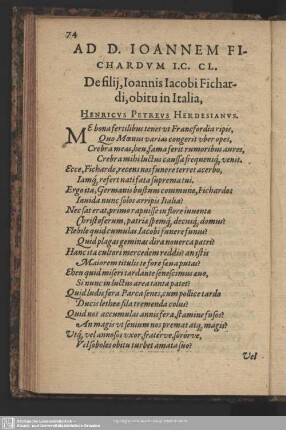 74
AD D. IOANNEM FI-
CHARDVM I.C. CL.
De filij, Ioannis Iacobi Fichar-
di, obitu in Italia,
HENRICVS PETREVS HERDESIANVS.
ME bona fertilibus tenet vt Francfordia ripis,
Quo Mœnus varias congerit vber opes,
Crebra meas, heu, fama ferit rumoribus aures,
Crebra mihi luctus caussa frequensq; venit.
Ecce, Ficharde, recens nos funere terret acerbo,
Iamq; refert nati fata suprema tui.
Ergo sta, Germanis bustum commune, Fichardos
Inuida nunc solos arripis Italia?
Nec sat erat, primo rapuisse in flore iuuentæ
Christoferum, patriæ spemq; decusq; domus?
Flebile quid cumulas Iacobi funere funus?
Quid plagas geminas dira nouerca patri?
Hanc sta cultori mercedem reddis? an istis
Maiorem titulis te fore sæua putas?
Eheu quid miseri tardante senescimus æuo,
Si nunc in luctus area tanta patet?
Quid ludis fera Parca senes, cum pollice tardo
Ducis lethæo fila tremenda colu?
Quid nos accumulas annis fera, stamine fusos?
An magis vt senium nos premat atq; magis?
Vtq; vel annosos vxor, fraterve, sororve,
Vel soboles obitu turbet amata suo?
Vel